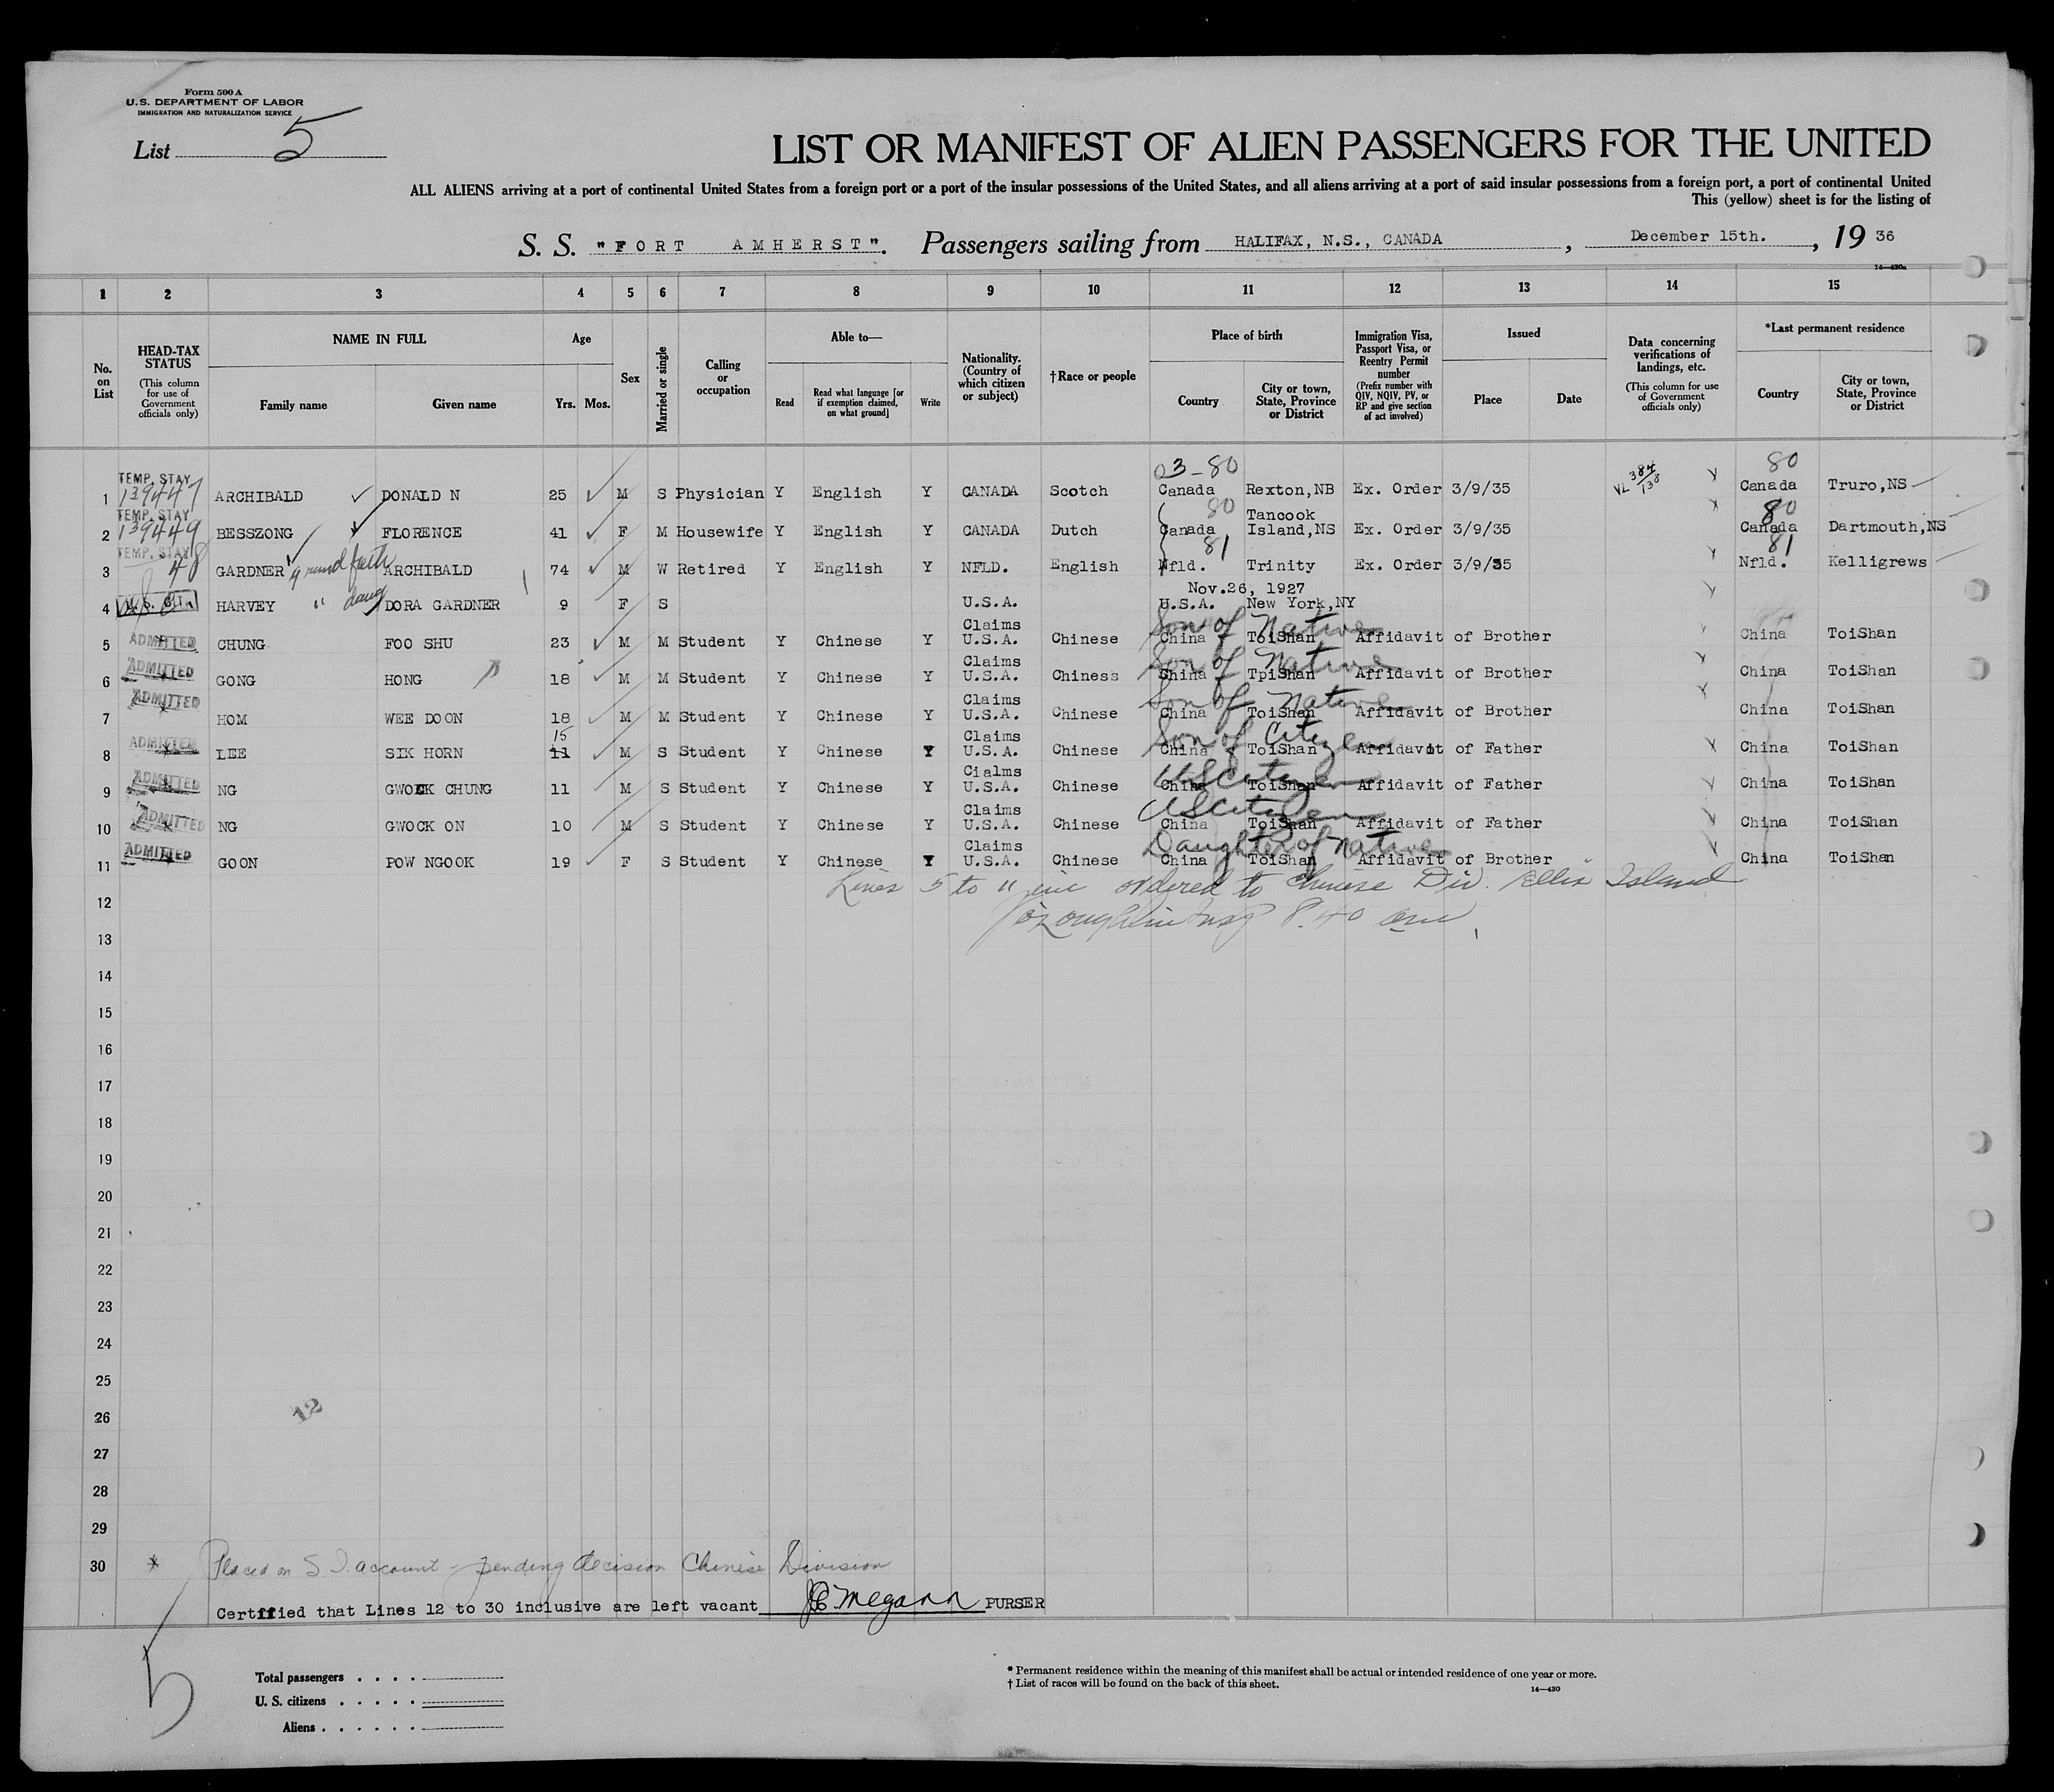 Form 500 A
U.S. DEPARTMENT OF LABOR
IMMIGRATION AND NATURALIZATION SERVICE
List 5
LIST OR MANIFEST OF ALIEN PASSENGERS FOR THE UNITED
ALL ALIENS arriving at a port of continental United States from a foreign port or a port of the insular possessions of the United States, and all aliens arriving at a port of said insular possessions from a foreign port, a port of continental United
This (yellow) sheet is for the listing of
S. S. "FORT AMHERST". Passengers sailing from HALIFAX, N.S., CANADA, December 15th., 19 36
14—430a
1 2 3 4 5 6 7 8 9 10 11 12 13 14 15
No. on List
HEAD-TAX STATUS (This column for use of Government officials only)
NAME IN FULL
Family name Given name
Age
Yrs. Mos.
Sex
Married or single
Calling or occupation
Able to—
Read Read what language [or if exemption claimed, on what ground] Write
Nationality. (Country of which citizen or subject)
†Race or people
Place of birth
Country City or town, State, Province or District
Immigration Visa, Passport Visa, or Reentry Permit number (Prefix number with QIV, NQIV, PV, or RP and give section of act involved)
Issued
Place Date
Data concerning verifications of landings, etc. (This column for use of Government officials only)
*Last permanent residence
Country City or town, State, Province or District
03-80 384/138 80
1 TEMP. STAY 139447 ARCHIBALD DONALD N 25 M S Physician Y English Y CANADA Scotch Canada Rexton,NB Ex. Order 3/9/35 Canada Truro,NS
80 80
2 TEMP. STAY 139449 BESSZONG FLORENCE 41 F M Housewife Y English Y CANADA Dutch Canada Tancook Island,NS Ex. Order 3/9/35 Canada Dartmouth,NS
81 81
3 TEMP. STAY 48 GARDNER grand fath ARCHIBALD 74 M W Retired Y English Y NFLD. English Nfld. Trinity Ex. Order 3/9/35 Nfld. Kelligrews
4 U.S. CIT. HARVEY " daug DORA GARDNER 9 F S U.S.A. Nov.26, 1927 U.S.A. New York,NY
Son of Native
5 ADMITTED CHUNG FOO SHU 23 M M Student Y Chinese Y Claims U.S.A. Chinese China ToiShan Affidavit of Brother China ToiShan
Son of Native
6 ADMITTED GONG HONG 18 M M Student Y Chinese Y Claims U.S.A. Chiness China ToiShan Affidavit of Brother China ToiShan
Son of Native
7 ADMITTED HOM WEE DOON 18 M M Student Y Chinese Y Claims U.S.A. Chinese China ToiShan Affidavit of Brother China ToiShan
15 Son of Citizen
8 ADMITTED LEE SIK HORN 11 M S Student Y Chinese Y Claims U.S.A. Chinese China ToiShan Affidavit of Father China ToiShan
US Citizen
9 ADMITTED NG GWOCK CHUNG 11 M S Student Y Chinese Y Cialms U.S.A. Chinese China ToiShan Affidavit of Father China ToiShan
US Citizen
10 ADMITTED NG GWOCK ON 10 M S Student Y Chinese Y Claims U.S.A. Chinese China ToiShan Affidavit of Father China ToiShan
Daughter of Native
11 ADMITTED GOON POW NGOOK 19 F S Student Y Chinese Y Claims U.S.A. Chinese China ToiShan Affidavit of Brother China ToiShan
Lines 5 to 11 inc ordered to Chinese Div. Ellis Island
12
Insp 8.40 am
13
14
15
16
17
18
19
20
21
22
23
24
25
12
26
27
28
29
30 * Placed on S. I. account - pending decision Chinese Division
Certified that Lines 12 to 30 inclusive are left vacant JC Megann PURSER
5
Total passengers . . . .
U. S. citizens . . . . .
Aliens . . . . . .
* Permanent residence within the meaning of this manifest shall be actual or intended residence of one year or more.
† List of races will be found on the back of this sheet.
14—430